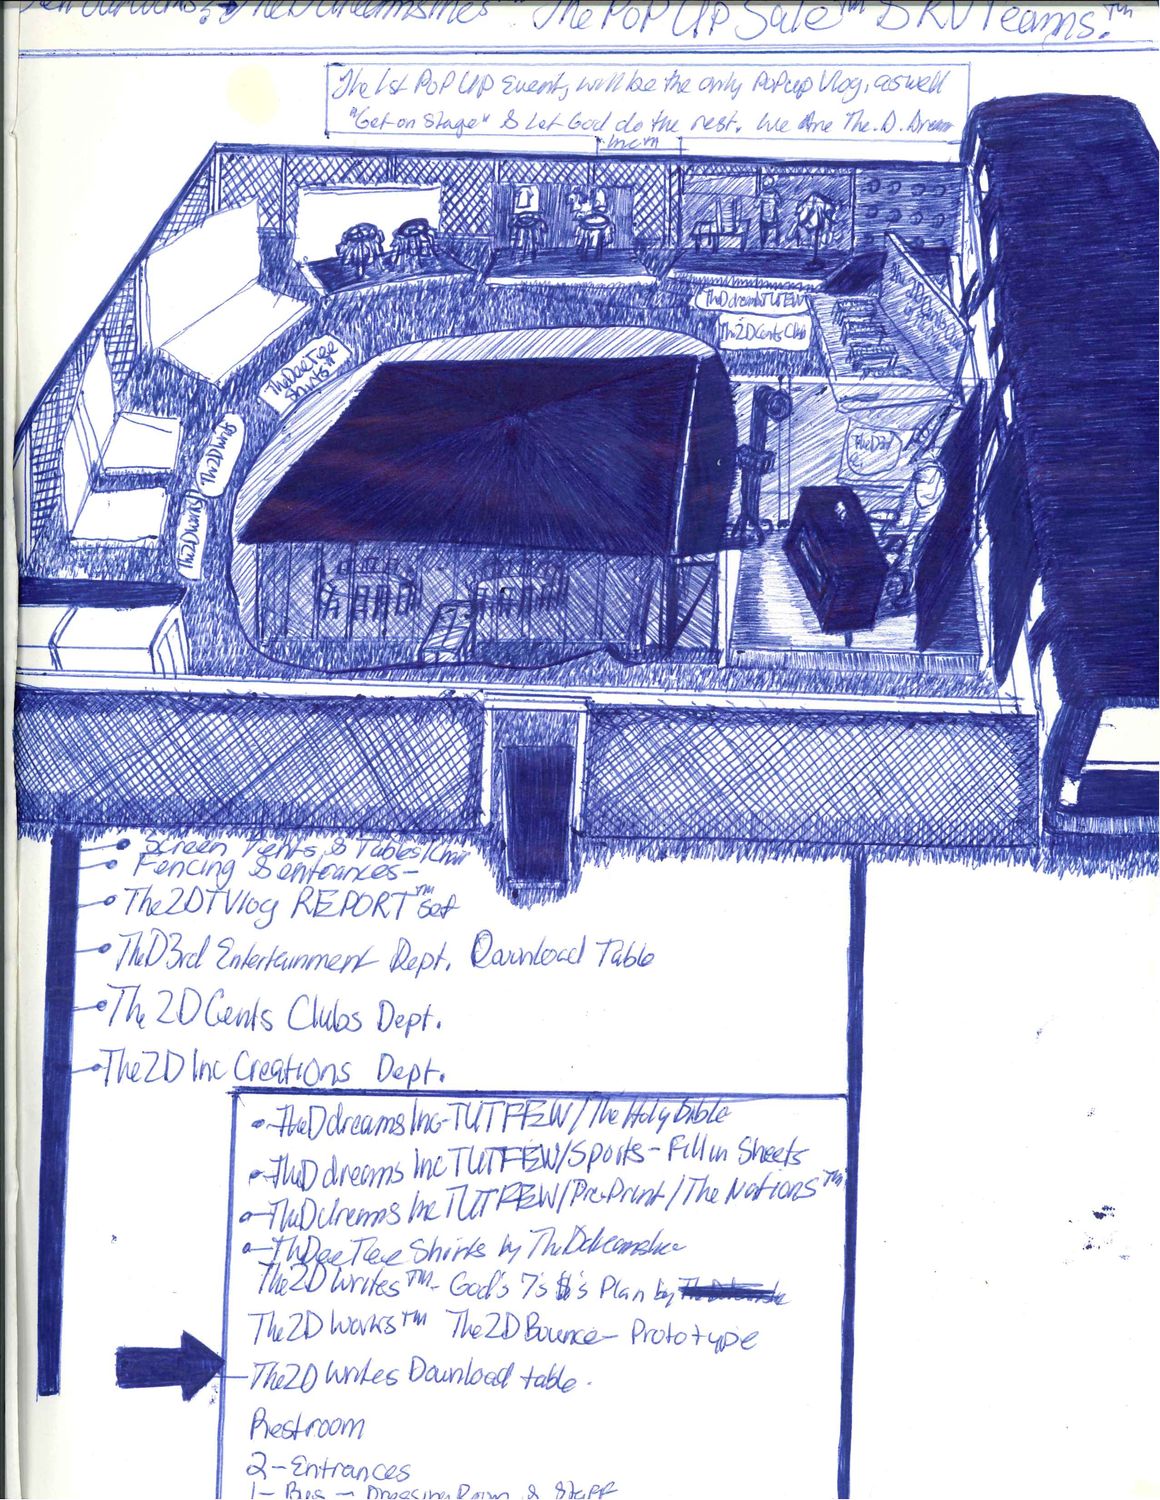 The PoP Up Sale™ DRV Teams.™
The 1st PoP Up Event, will be the only PoPup Vlog, as well
"Get on Stage" & Let God do the rest. We Are The.D.Dream
Inc™
TheDdreamsTUTFEW
The2DCents Club
TheDeeTeee
Shirts™
The2DWrits
The2DWorks
TheD3rd
Screen Tents & Tables/Chair
Fencing & entrances-
The2DTVlog REPORT™ Set
TheD3rd Entertainment Dept. Download Table
The 2D Cents Clubs Dept.
The2D Inc Creations Dept.
TheDdreamsInc-TUTFEW/The Holy Bible
TheDdreams Inc TUTFEW/Sports-Fill in Sheets
TheDdreams Inc TUTFEW/Pre-Print/The Nations™
TheDeeTeee Shirts by
The2DWrites™- God's 7's $'s Plan by
The2DWorks™ The2DBounce- Prototype
The2DWrites Download table.
Restroom
2-Entrances
1- Bus - Dressing Room & Staff